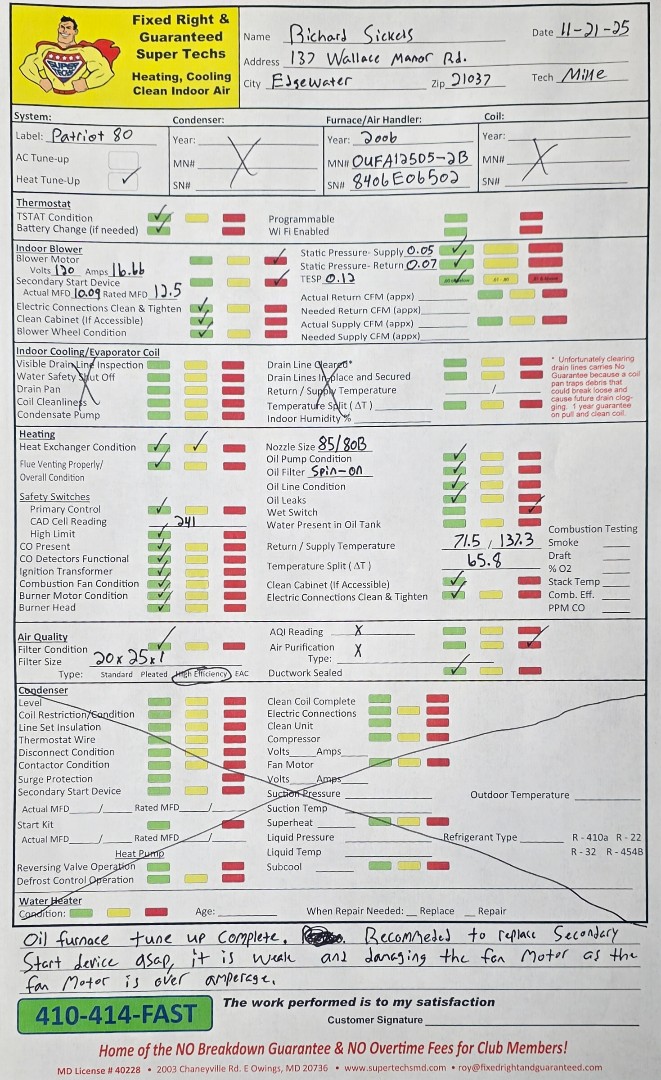 Fixed Right &
Guaranteed
Super Techs
Heating, Cooling
Clean Indoor Air
SUPER
TECHS
Name Richard Sickels Date 11-21-25
Address 137 Wallace Manor Rd.
City Edgewater Zip 21037 Tech Mike
System: Condenser: Furnace/Air Handler: Coil:
Label: Patriot 80 Year: X Year: 2006 Year: X
AC Tune-up MN# MN# OUFA12505-2B MN#
Heat Tune-Up ✓ SN# SN# 8406E06502 SN#
Thermostat
TSTAT Condition ✓ Programmable
Battery Change (if needed) ✓ Wi Fi Enabled
Indoor Blower Static Pressure- Supply 0.05 ✓
Blower Motor ✓ Static Pressure- Return 0.07 ✓
Volts 120 Amps 16.66 TESP 0.12 ✓
Secondary Start Device ✓
Actual MFD 10.09 Rated MFD 12.5 Actual Return CFM (appx)
Electric Connections Clean & Tighten ✓ Needed Return CFM (appx)
Clean Cabinet (If Accessible) ✓ Actual Supply CFM (appx)
Blower Wheel Condition ✓ Needed Supply CFM (appx)
Indoor Cooling/Evaporator Coil
Visible Drain Line Inspection Drain Line Cleared*
Water Safety Shut Off Drain Lines In place and Secured
Drain Pan Return / Supply Temperature /
Coil Cleanliness Temperature Split ( ΔT )
Condensate Pump Indoor Humidity %
* Unfortunately clearing
drain lines carries No
Guarantee because a coil
pan traps debris that
could break loose and
cause future drain clog-
ging. 1 year guarantee
on pull and clean coil.
Heating Nozzle Size 85/80B
Heat Exchanger Condition ✓ ✓ Oil Pump Condition ✓
Flue Venting Properly/ ✓ Oil Filter Spin-on ✓
Overall Condition Oil Line Condition ✓
Safety Switches Oil Leaks ✓
Primary Control ✓ Wet Switch ✓
CAD Cell Reading 241 Water Present in Oil Tank
High Limit ✓
CO Present ✓ Return / Supply Temperature 71.5 / 137.3
CO Detectors Functional ✓ Temperature Split ( ΔT ) 65.8
Ignition Transformer ✓
Combustion Fan Condition ✓ Clean Cabinet (If Accessible) ✓
Burner Motor Condition ✓ Electric Connections Clean & Tighten ✓
Burner Head ✓
Combustion Testing
Smoke
Draft
% O2
Stack Temp
Comb. Eff.
PPM CO
Air Quality AQI Reading X
Filter Condition ✓ Air Purification X ✓
Filter Size 20x25x1 Type:
Type: Standard Pleated High Efficiency EAC Ductwork Sealed ✓
Condenser
Level Clean Coil Complete
Coil Restriction/Condition Electric Connections
Line Set Insulation Clean Unit
Thermostat Wire Compressor
Disconnect Condition Volts Amps
Contactor Condition Fan Motor
Surge Protection Volts Amps
Secondary Start Device Suction Pressure Outdoor Temperature
Actual MFD / Rated MFD / Suction Temp
Start Kit Superheat
Actual MFD / Rated MFD / Liquid Pressure Refrigerant Type R - 410a R - 22
Heat Pump Liquid Temp R - 32 R - 454B
Reversing Valve Operation Subcool
Defrost Control Operation
Water Heater
Condition: Age: When Repair Needed: Replace Repair
Oil furnace tune up complete. Recommeded to replace Secondary
Start device asap, it is weak and damaging the fan motor as the
fan motor is over amperage.
410-414-FAST The work performed is to my satisfaction
Customer Signature
Home of the NO Breakdown Guarantee & NO Overtime Fees for Club Members!
MD License # 40228 • 2003 Chaneyville Rd. E Owings, MD 20736 • www.supertechsmd.com • roy@fixedrightandguaranteed.com